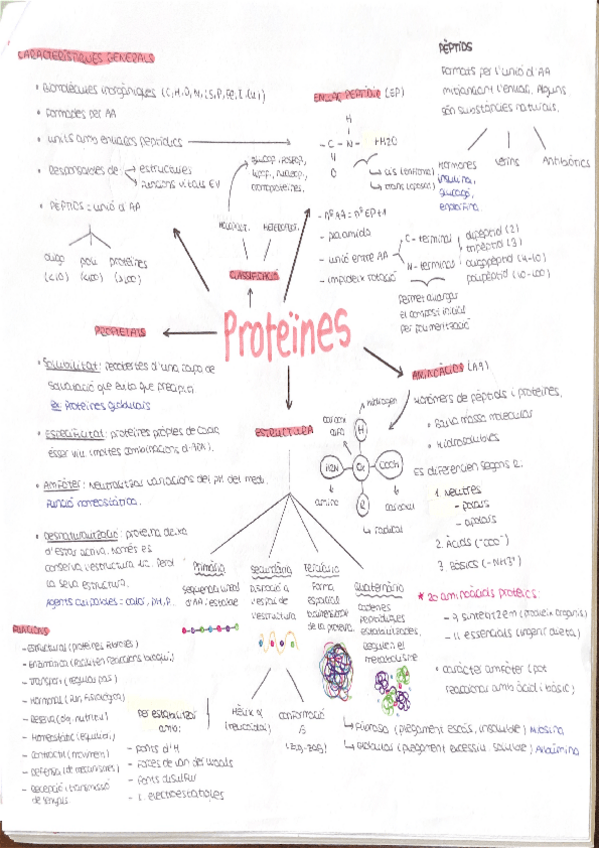 CARACTERÍSTIQUES GENERALS
• Biomolècules inorgàniques (C, H, O, N, i S, P, Fe, I, Cu)
• Formades per AA
• units amb enllaços peptídics
• Responsables de
estructures
Funcions vitals EV
• PÈPTIDS = unió d'AA
oligo
poli
proteïnes
(<10)
(<100)
(>100)
glucop., fosfop.,
lipop., nucleop.,
cromoproteïnes.
HOLOPROT.
HETEROPROT.
CLASSIFICACIÓ
ENLLAÇ PEPTÍDIC (EP)
H
- C - N -
+H2O
O
cis
trans
- nº AA = nº EP+1
- pla amida
- unió entre AA
C - terminal
N - terminal
- impedeix rotació
dipèptid (2)
tripèptid (3)
oligopèptid (4-10)
polipèptid (10-100)
Permet allargar
el compost inicial
per polimerització
PÈPTIDS
Formats per l'unió d'AA
mitjançant l'enllaç. Alguns
són substàncies naturals.
Hormones
insulina,
glucagó,
Verins
Antibiòtics
Proteïnes
PROPIETATS
• Solubilitat: recobertes d'una capa de
solvatació que evita que precipitin
Ex: Proteïnes globulars
• Especificitat: proteïnes pròpies de cada
ésser viu (moltes combinacions d'ADN).
• Amfòter: Neutralitzar variacions del pH del medi.
Funció homeostàtica.
• Desnaturalització: proteïna deixa
d'estar activa. Només es
conserva l'estructura 1a. Perd
la seva estructura.
Agents causables = calor, pH, P.
ESTRUCTURA
AMINOÀCIDS (AA)
Monòmers de pèptids i proteïnes.
• Baixa massa molecular
• Hidrosolubles
Es diferencien segons R:
1. Neutres
- polars
- apolars
2. Àcids (-COO⁻)
3. BÀSICS (-NH3⁺)
hidrogen
carboni
alfa
H
H2N
Cα
COOH
R
amino
carboxil
radical
* 20 aminoàcids proteics:
- 9 sintetitzem
- 11 essencials (ingerir dieta)
• caràcter amfòter (pot
reaccionar amb àcid i bàsic)
Primària
Seqüència lineal
d'AA: estable
Secundària
Disposició a
l'espai de
l'estructura
Terciària
Forma
espacial
de la proteïna
Quaternària
cadenes
peptídiques
estabilitzades,
regulen el
metabolisme
FUNCIONS
- Estructural (proteïnes fibroses)
- Enzimàtica
- Transport (regular pas)
- Hormonal (Fun. Fisiològica)
- Reserva
- Homeostàtic (equilibri)
- Contràctil (moviment)
- Defensa
- Recepció i transmissió
de senyals
Per estabilitzar
amb:
- Ponts d'H
- Forces de Van der Waals
- Ponts disulfur
- I. electroestàtiques
Hèlix α
(queratina)
conformació
β
Fibrosa (plegament escàs, insoluble) Miosina
Globular (plegament excessiu, soluble) Albúmina